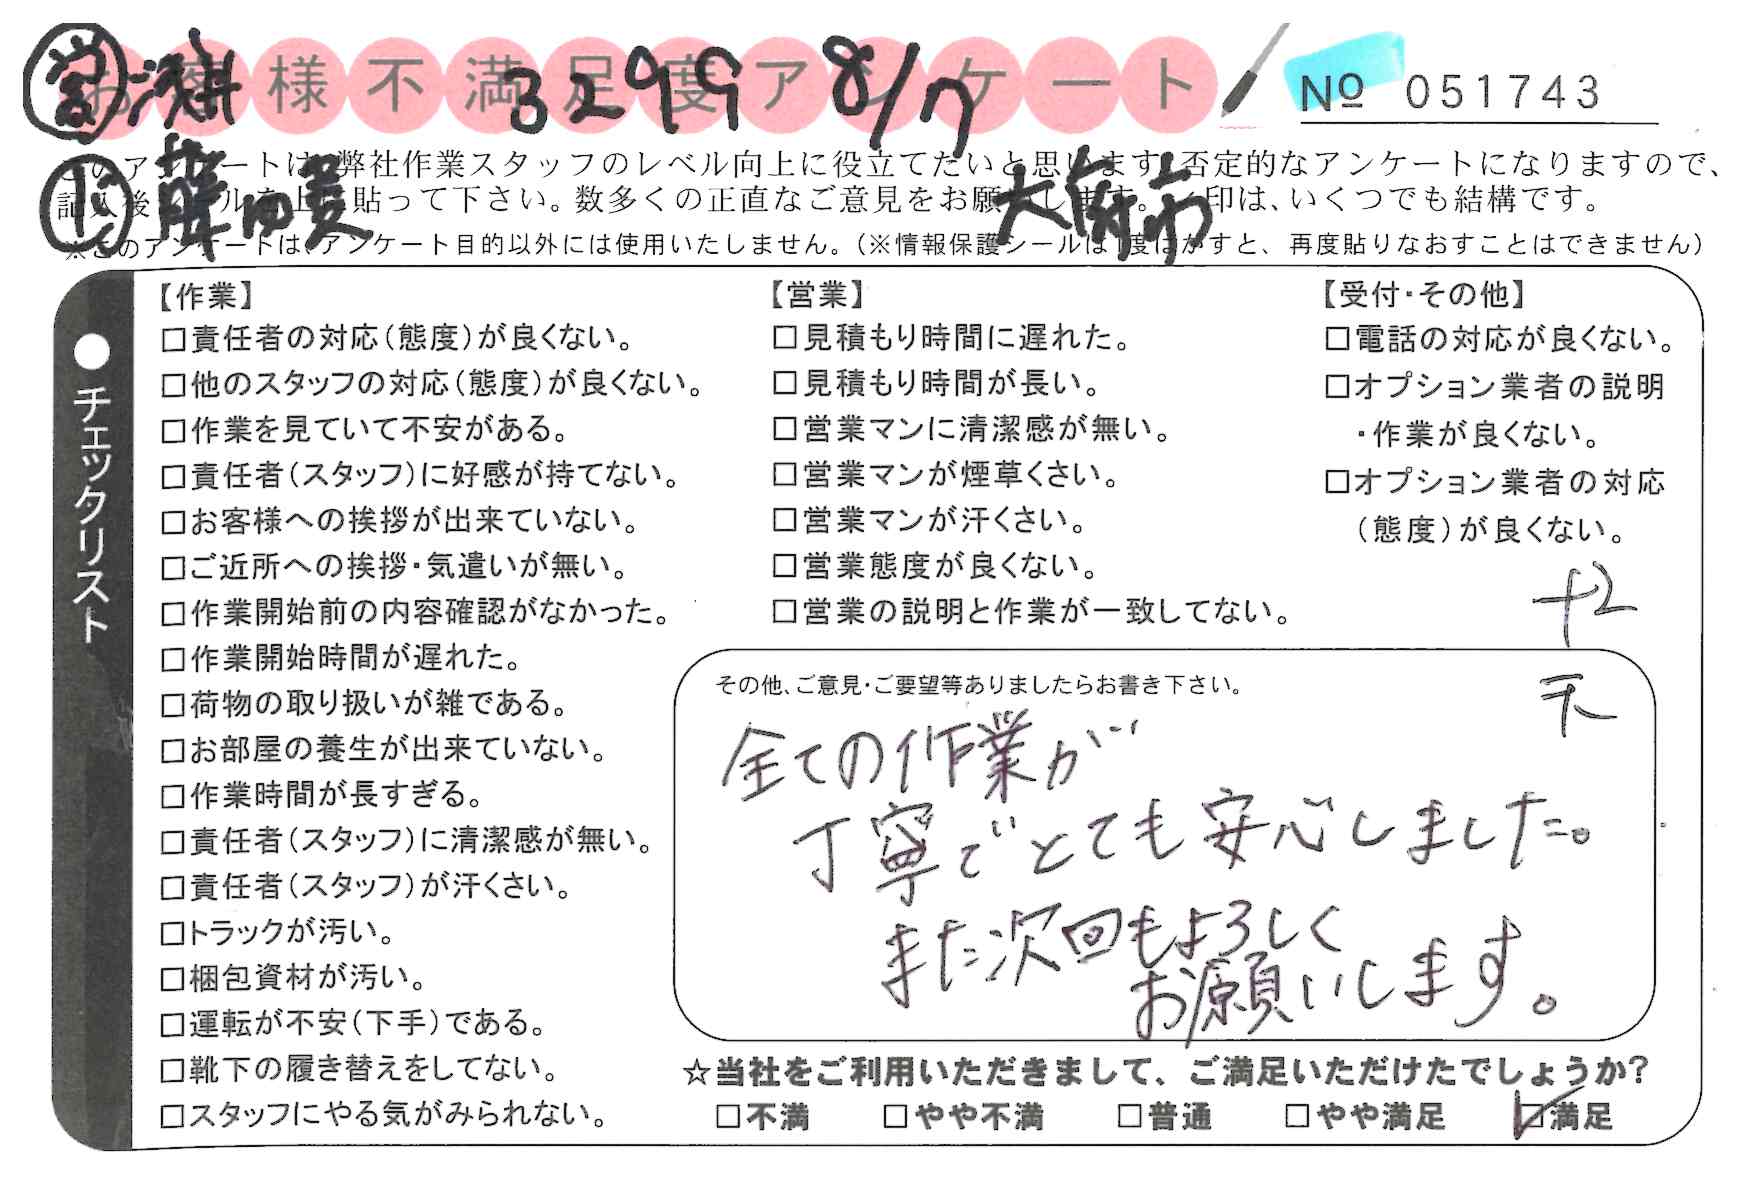 お客様不満足度アンケート
3299 8/7
№ 051743
このアンケートは、弊社作業スタッフのレベル向上に役立てたいと思います。否定的なアンケートになりますので、
記入後シールを上に貼って下さい。数多くの正直なご意見をお願いします。✓印は、いくつでも結構です。
大府市
※このアンケートは、アンケート目的以外には使用いたしません。(※情報保護シールは1度はがすと、再度貼りなおすことはできません)
●チェックリスト
【作業】
□責任者の対応(態度)が良くない。
□他のスタッフの対応(態度)が良くない。
□作業を見ていて不安がある。
□責任者(スタッフ)に好感が持てない。
□お客様への挨拶が出来ていない。
□ご近所への挨拶・気遣いが無い。
□作業開始前の内容確認がなかった。
□作業開始時間が遅れた。
□荷物の取り扱いが雑である。
□お部屋の養生が出来ていない。
□作業時間が長すぎる。
□責任者(スタッフ)に清潔感が無い。
□責任者(スタッフ)が汗くさい。
□トラックが汚い。
□梱包資材が汚い。
□運転が不安(下手)である。
□靴下の履き替えをしてない。
□スタッフにやる気がみられない。
【営業】
□見積もり時間に遅れた。
□見積もり時間が長い。
□営業マンに清潔感が無い。
□営業マンが煙草くさい。
□営業マンが汗くさい。
□営業態度が良くない。
□営業の説明と作業が一致してない。
【受付・その他】
□電話の対応が良くない。
□オプション業者の説明
・作業が良くない。
□オプション業者の対応
(態度)が良くない。
+2
その他、ご意見・ご要望等ありましたらお書き下さい。
全ての作業が
丁寧でとても安心しました。
また次回もよろしく
お願いします。
☆当社をご利用いただきまして、ご満足いただけたでしょうか?
□不満 □やや不満 □普通 □やや満足 ☑満足